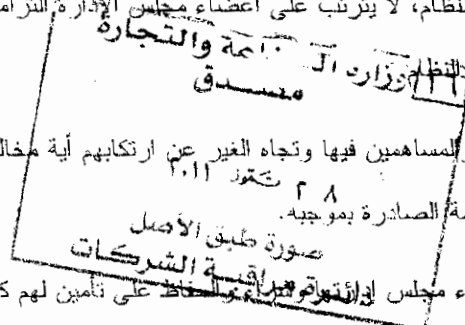 النظام، لا يترتب على أعضاء مجلس الإدارة التزام
وزارة الصناعة والتجارة
النظام
مصدق
المساهمين فيها وتجاه الغير عن ارتكابهم أية مخال
٢٨ تموز ٢٠١١
ة الصادرة بموجبه.
صورة طبق الأصل
دائرة مراقبة الشركات
ء مجلس إدارتها وشراء والحفاظ على تأمين لهم ك